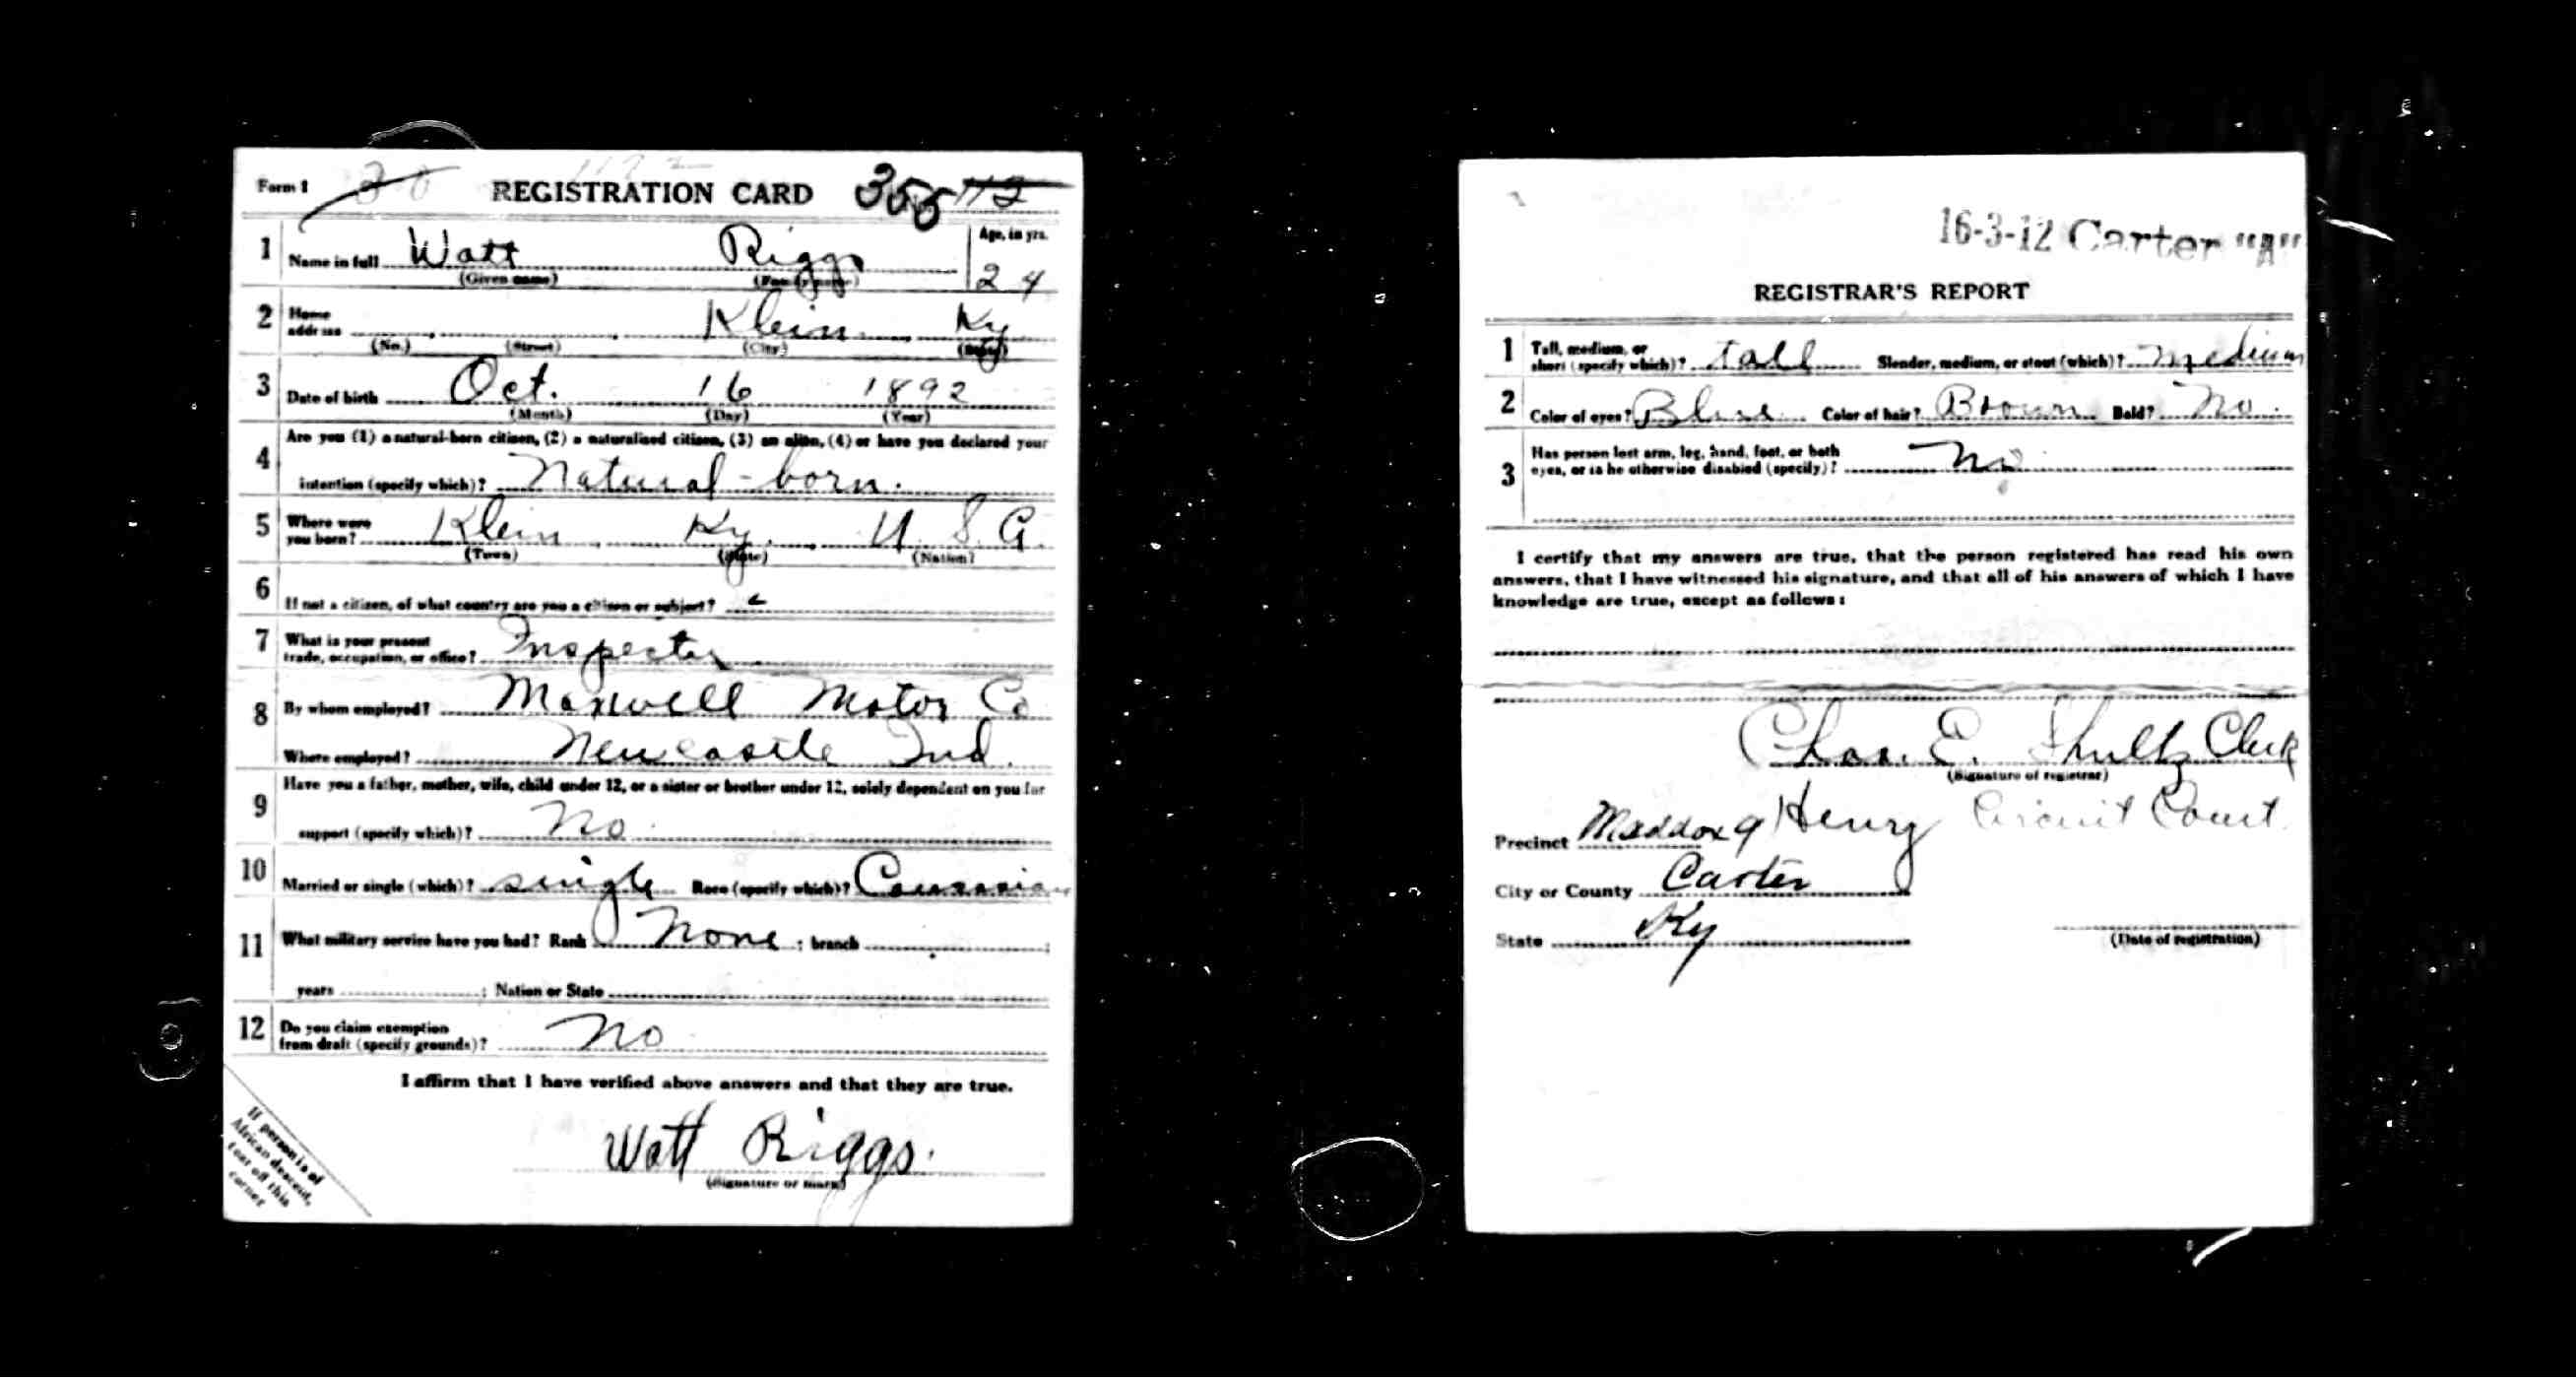 Form 1 REGISTRATION CARD 355 112
1 Name in full Watt Riggs Age, in yrs.
(Given name) (Family name) 24
2 Home address Klein Ky
(No.) (Street) (City) (State)
3 Date of birth Oct. 16 1892
(Month) (Day) (Year)
4 Are you (1) a natural-born citizen, (2) a naturalized citizen, (3) an alien, (4) or have you declared your
intention (specify which)? Natural-born.
5 Where were you born? Klein Ky. U.S.A.
(Town) (State) (Nation)
6 If not a citizen, of what country are you a citizen or subject?
7 What is your present
trade, occupation, or office? Inspector
8 By whom employed? Maxwell Motor Co
Where employed? Newcastle Ind.
9 Have you a father, mother, wife, child under 12, or a sister or brother under 12, solely dependent on you for
support (specify which)? No
10 Married or single (which)? single Race (specify which)? Caucasian
11 What military service have you had? Rank None ; branch ;
years ; Nation or State
12 Do you claim exemption
from draft (specify grounds)? No
I affirm that I have verified above answers and that they are true.
Watt Riggs.
(Signature or mark)
If person is of
African descent,
tear off this
corner
16-3-12 Carter "A"
REGISTRAR'S REPORT
1 Tall, medium, or
short (specify which)? tall Slender, medium, or stout (which)? medium
2 Color of eyes? Blue Color of hair? Brown Bald? No.
3 Has person lost arm, leg, hand, foot, or both
eyes, or is he otherwise disabled (specify)? No
I certify that my answers are true, that the person registered has read his own
answers, that I have witnessed his signature, and that all of his answers of which I have
knowledge are true, except as follows:
Chas. E. Shultz Clerk
(Signature of registrar)
Precinct Maddox Henry Circuit Court.
City or County Carter
State Ky
(Date of registration)